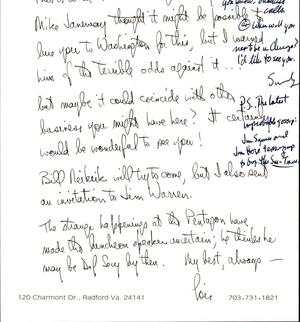 Mike Janeway thought it might be possible to
lure you to Washington for this, but I warned
him of the terrible odds against it . . .
but maybe it could coincide with other
business you might have here? It certainly
would be wonderful to see you!
Bill will try to come, but I also sent
an invitation to Jim Warren.
The strange happenings at the Pentagon have
made the luncheon speaker uncertain; he thinks he
may be Def Secy by then. My best, always —
Lois
calls.
When will you
next be in Chicago?
I'd like to see you.
P.S. The latest
Jim Squires and
to buy the Sun-Times
120 Charmont Dr., Radford Va. 24141
703-731-1821